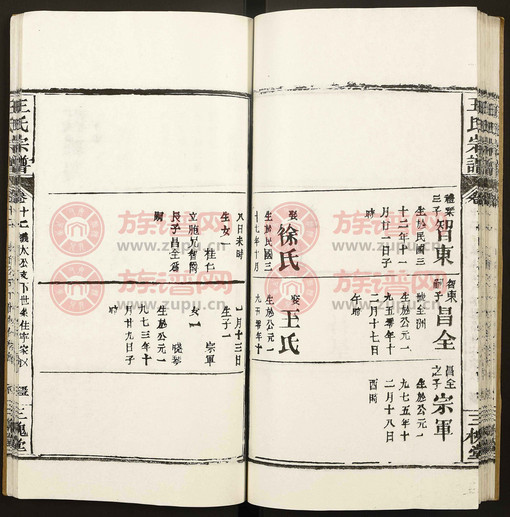 王氏宗譜
禮業
三子
智東
生於民國三
十二年十
月廿二日子
時
娶
徐氏
生於民國三
十七年十月
八日未時
生女一
桂仁
立胞兄智周
長子昌全為
嗣
智東
嗣子
昌全
號全洲
生於公元一
九五零年十
二月十七日
午時
娶
王氏
生於公元一
九五零年十
一月十三日
生子一
宗軍
女一
生於公元一
九七三年十
月廿九日子
時
昌全
之子
宗軍
生於公元一
九七五年十
二月十八日
酉時
三槐堂
王氏宗譜
三槐堂
族谱网
www.zupu.cn
族谱网
www.zupu.cn
族谱网
www.zupu.cn
族谱网
www.zupu.cn